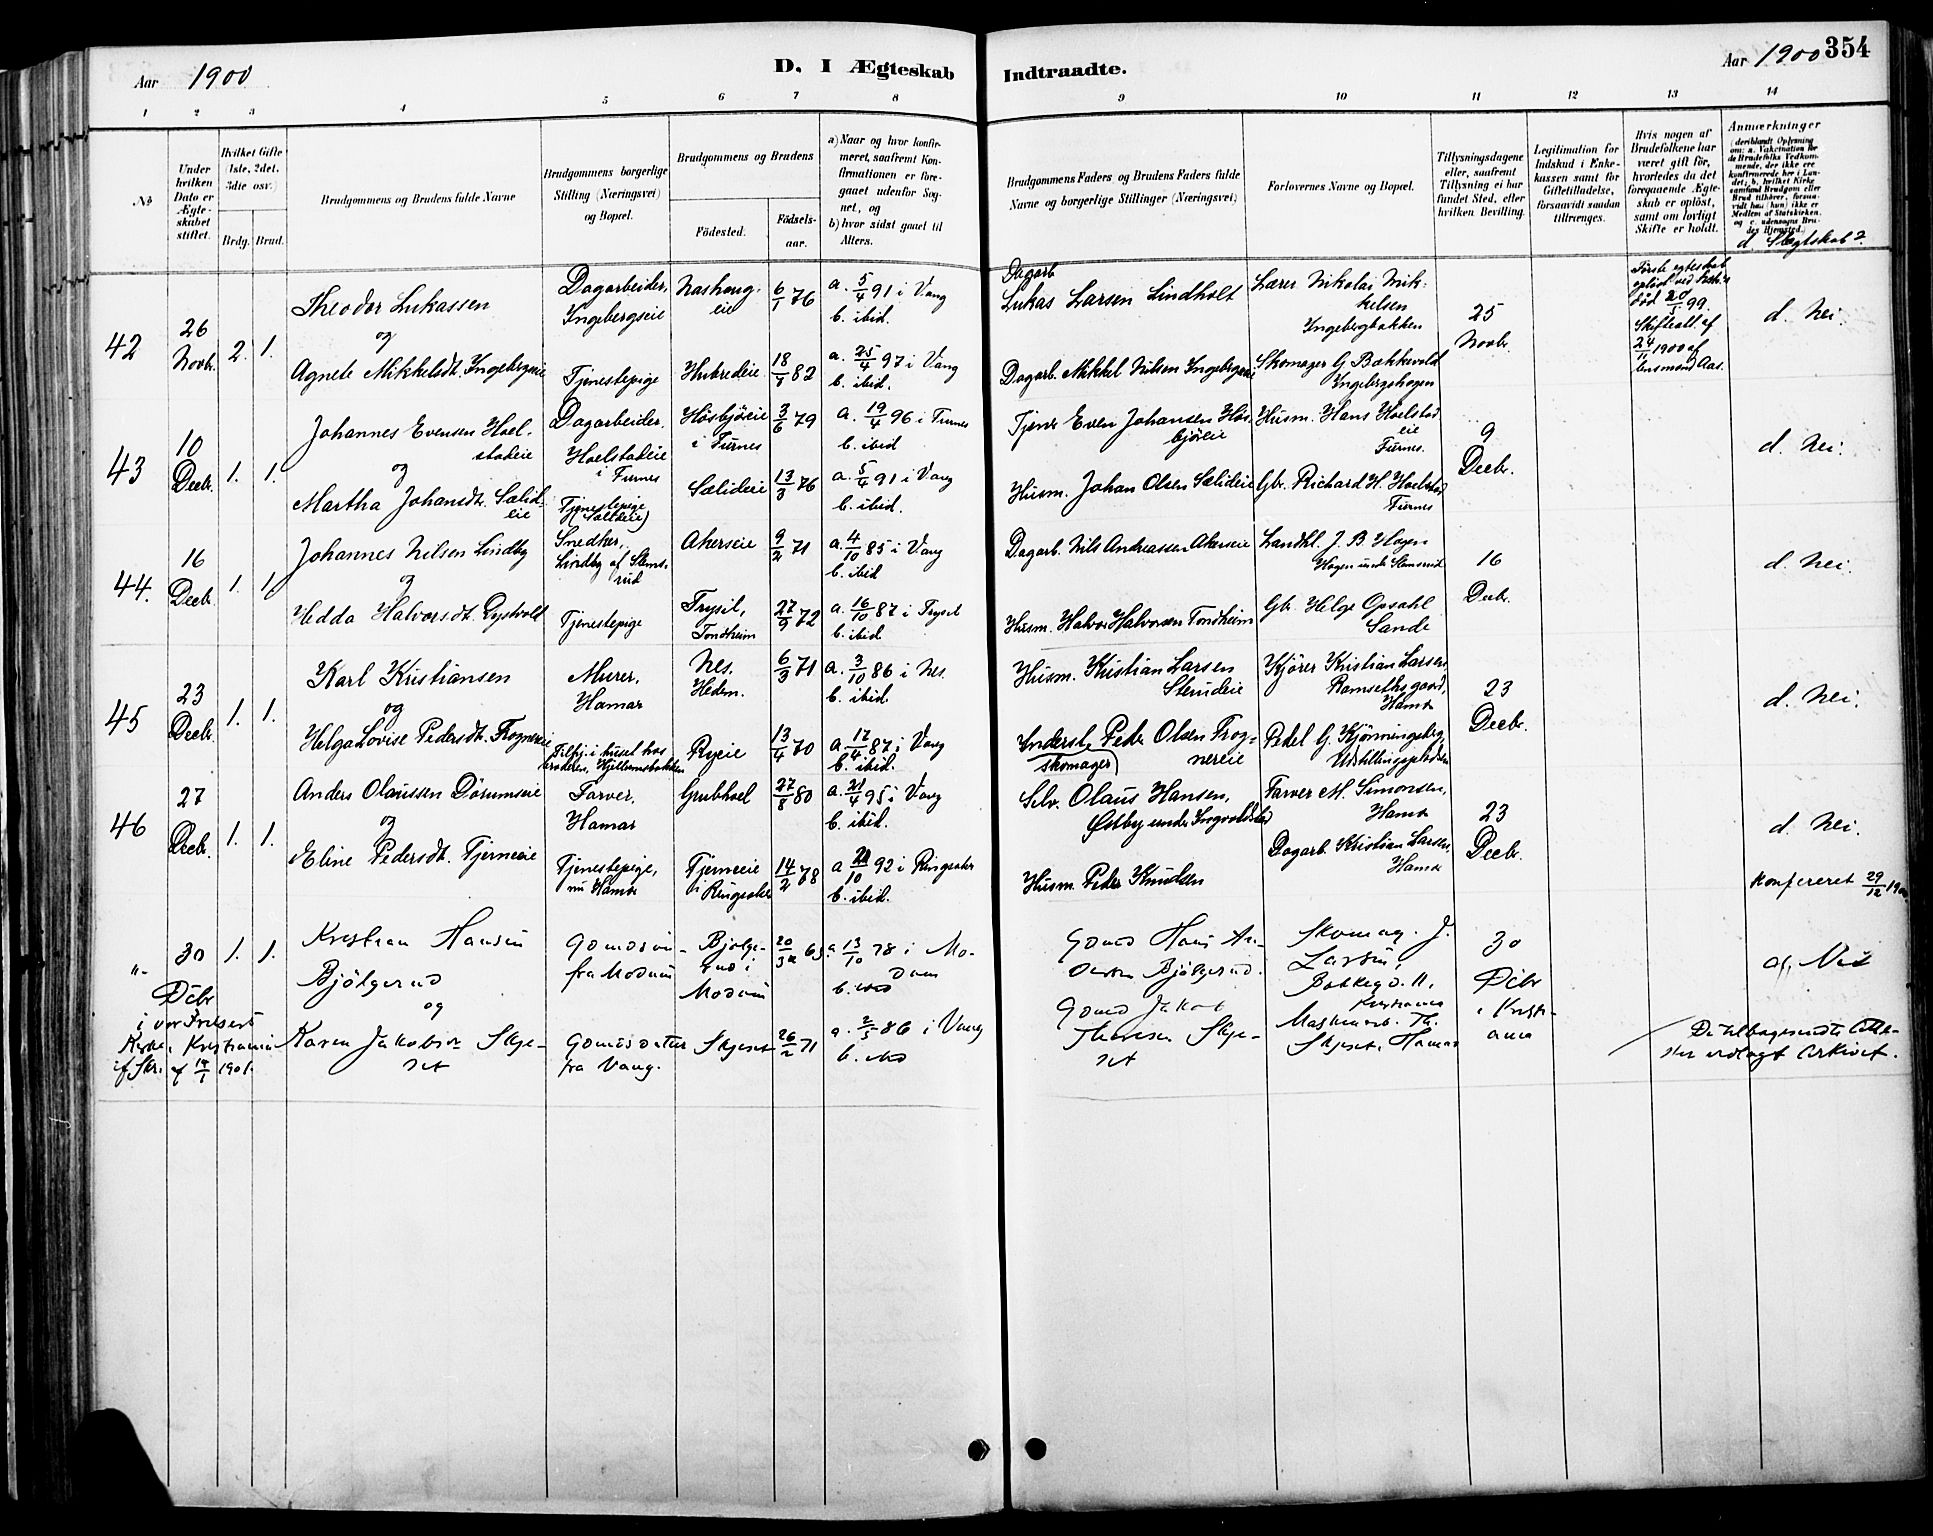 Aar 1900
D. I Ægteskab Indtraadte.
Aar 1900 354
1 2 3 4 5 6 7 8 9 10 11 12 13 14
No
Under hvilken Dato er Ægteskabet stiftet.
Hvilket Gifte (1ste, 2det, 3die osv.)
Brdg. Brud.
Brudgommens og Brudens fulde Navne
Brudgommens borgerlige Stilling (Næringsvei) og Bopæl.
Brudgommens og Brudens
Fødested.
Fødselsaar.
a) Naar og hvor konfirmeret, saafremt Konfirmationen er foregaaet udenfor Sognet, og
b) hvor sidst gaaet til Alters.
Brudgommens Faders og Brudens Faders fulde Navne og borgerlige Stillinger (Næringsvei)
Forlovernes Navne og Bopæl.
Tillysningsdagene eller, saafremt Tillysning ei har fundet Sted, efter hvilken Bevilling.
Legitimation for Indskud i Enkekassen samt for Giftetilladelse, forsaavidt saadan tiltrænges.
Hvis nogen af Brudefolkene har været gift før, hvorledes da det foregaaende Ægteskab er opløst, samt om lovligt Skifte er holdt.
Anmærkninger (deriblandt Oplysning om: a. Vakcination for de Brudefolks Vedkommende, der ikke ere konfirmerede her i Landet; b. hvilket Kirkesamfund Brudgom eller Brud tilhører, forsaavidt han (hun) ikke er Medlem af Statskirken, og c. udensogns Brudes Hjemsted.)
d. Slegtskab?
42
26 Novbr.
2. 1.
Theodor Lukassen
og
Agnete Mikkelsdt. Ingebergeie
Dagarbeider, Ingebergseie
Tjenestepige
Nashougeie
Hubredeie
6/1 76
18/4 82
a. 5/4 91 i Vang
b. ibid.
a. 25/4 97 i Vang
b. ibid.
Dagarb. Lukas Larsen Lindholt
Dagarb. Mikkel Nilsen Ingebergeie
Lærer Nikolai Mikkelsen Ingebergbakken
Skomager G Bakkevold Ingebergshagen
25 Novbr.
Første egteskab opløst ved
død 20/5 99.
Skifteatt. af 24/11 1900 af lensmand Aas.
d. Nei.
43
10 Decbr.
1. 1.
Johannes Evensen Hoelstadeie
og
Martha Johansdt. Sælideie
Dagarbeider, Hoelstadeie i Furnes
Tjenestepige
Høsbjøreie i Furnes
Sælideie
3/6 79
13/3 76
a. 19/4 96 i Furnes
b. ibid
a. 5/4 91 i Vang
b. ibid.
Tjener Even Johansen Høsbjøreie
Husm. Johan Olsen Sælideie
Husm. Hans Hoelstadeie Furnes.
Gbr. Richard H. Hoelstad Furnes
9 Decbr.
d. Nei.
44.
16 Decbr.
1. 1.
Johannes Nilsen Lindby
og
Hedda Halvorsdt. Rystvold
Snedker, Lindby af Stemsrud
Tjenestepige
Akerseie
Trysil, Tondheim
9/2 71
27/9 72
a. 4/10 85 i Vang
b. ibid
a. 16/10 87 i Trysil
b. ibid.
Dagarb. Nils Andreassen Akerseie
Husm. Halvor Halvorsen Tondheim
Landhl. J. B. Hagen Hagen under Stemsrud
Gbr. Helge Opsahl Sande
16 Decbr.
d. Nei.
45
23 Decbr.
1. 1.
Karl Kristiansen
og
Helga Lovise Pedersdt. Frognereie
Murer, Hamar
Tilhj. i huset hos broderen, Hjellumsbakken
Nes. Hedem.
Ryeie
6/3 71
13/4 70
a. 3/10 86 i Nes.
b. ibid.
a. 17/4 87 i Vang
b. ibid.
Husm. Kristian Larsen Sterudeie
Inderst, Peder Olsen Frognereie
skomager)
Kjører Kristian Larsen, Ramsethsgaard, Hamar
Pedel G. Kjønningsberg, Udstillingspladsen
23 Decbr.
d. Nei.
46
27 Decbr.
1. 1.
Anders Olaussen Dørumseie
og
Eline Pedersdt. Tjerneeie
Farver, Hamar
Tjenestepige, nu Hamar
Grubhoel
Tjerneeie i Ringsaker
27/8 80
14/2 78
a. 21/4 95 i Vang
b. ibid.
a 21/10 92 i Ringsaker
b. ibid.
Selv. Olaus Hansen, Østby under Ingvoldstad
Husm. Peder Knudsen
Farver M. Simonsen, Hamar
Dagarb. Kristian Larsen, Hamar
23 Decbr.
d. Nei.
konfereret 29/12 1900
"-
30 Dcbr
i vor Frelsers Kirke, Kristiania
if Skr. af 14/1 1901.
1. 1.
Kristian Hansen Bjølgerud
og
Karen Jakobsen Skjeset
Gmdsøn fra Modum
Gmdsdatter fra Vang.
Bjølgerud i Modum
Skjeset
20/3 63
26/2 71
a. 13/10 78 i Modum
b. ibid
a. 2/5 86 i Vang
b. ibid
Gmd Hans Andersen Bjølgerud.
Gmd Jakob Thoresen Skjeset
Skomag. J. Larsen, Bakkegd. 11, Kristiania
Maskinarb. Th. Skjeset, Hamar
30 Dcbr i Kristiania
d. Nei
De tilbagesendte Attester vedlagt Arkivet.